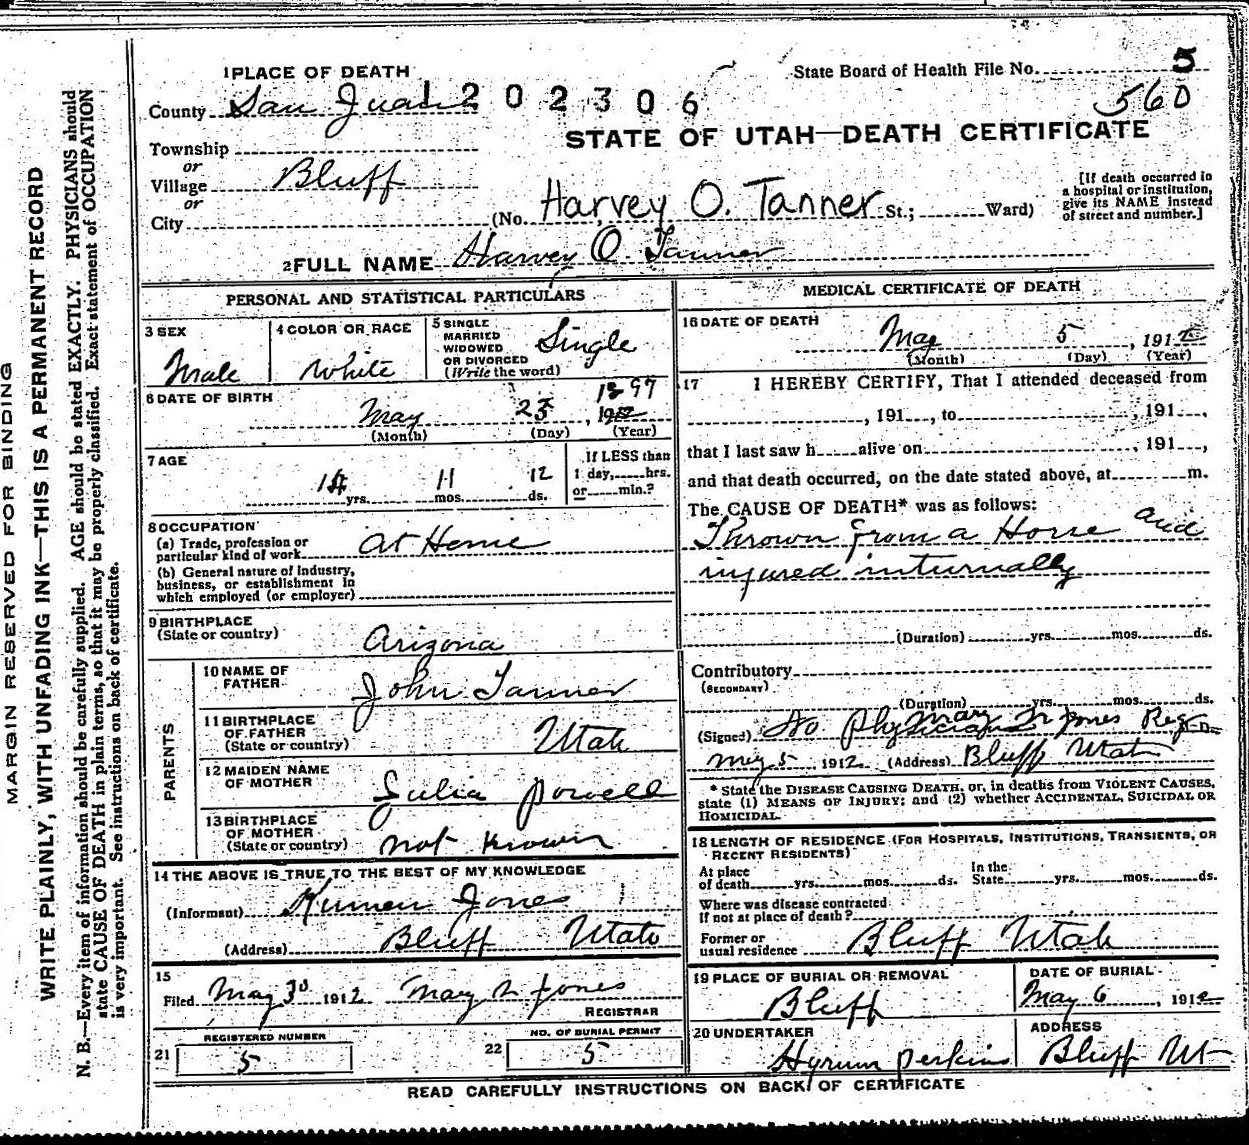 State Board of Health File No. 5
560
1 PLACE OF DEATH
1202306
County San Juan
STATE OF UTAH—DEATH CERTIFICATE
Township
or
Village Bluff
or
City (No. Harvey O. Tanner St.; Ward)
[If death occurred in a hospital or institution, give its NAME instead of street and number.]
2 FULL NAME Harvey O Tanner
PERSONAL AND STATISTICAL PARTICULARS
3 SEX
Male
4 COLOR OR RACE
White
5 SINGLE
MARRIED
WIDOWED
OR DIVORCED
(Write the word)
Single
6 DATE OF BIRTH
1897
May 25, 1912
(Month) (Day) (Year)
7 AGE
14 yrs. 11 mos. 12 ds.
If LESS than
1 day, hrs.
or min.?
8 OCCUPATION
(a) Trade, profession or
particular kind of work at Home
(b) General nature of industry,
business, or establishment in
which employed (or employer)
9 BIRTHPLACE
(State or country)
Arizona
PARENTS
10 NAME OF
FATHER
John Tanner
11 BIRTHPLACE
OF FATHER
(State or country)
Utah
12 MAIDEN NAME
OF MOTHER
Julia Powell
13 BIRTHPLACE
OF MOTHER
(State or country)
not known
14 THE ABOVE IS TRUE TO THE BEST OF MY KNOWLEDGE
(Informant) Kumen Jones
(Address) Bluff Utah
15
Filed May 30 1912 Mary N Jones
REGISTRAR
REGISTERED NUMBER
21 5
NO. OF BURIAL PERMIT
22 5
MEDICAL CERTIFICATE OF DEATH
16 DATE OF DEATH
May 5, 1912
(Month) (Day) (Year)
17 I HEREBY CERTIFY, That I attended deceased from
, 191 , to , 191 ,
that I last saw h alive on , 191 ,
and that death occurred, on the date stated above, at m.
The CAUSE OF DEATH* was as follows:
Thrown from a Horse and
injured internally
(Duration) yrs. mos. ds.
Contributory
(SECONDARY)
(Duration) yrs. mos. ds.
(Signed) No Physician Mary N Jones Reg
May 5 1912 (Address) Bluff Utah
* State the DISEASE CAUSING DEATH, or, in deaths from VIOLENT CAUSES,
state (1) MEANS OF INJURY; and (2) whether ACCIDENTAL, SUICIDAL OR
HOMICIDAL.
18 LENGTH OF RESIDENCE (FOR HOSPITALS, INSTITUTIONS, TRANSIENTS, OR
RECENT RESIDENTS)
At place
of death yrs. mos. ds.
In the
State yrs. mos. ds.
Where was disease contracted
if not at place of death?
Former or
usual residence Bluff Utah
19 PLACE OF BURIAL OR REMOVAL
Bluff
DATE OF BURIAL
May 6, 1912
20 UNDERTAKER
Hyrum Perkins
ADDRESS
Bluff Ut
READ CAREFULLY INSTRUCTIONS ON BACK OF CERTIFICATE
MARGIN RESERVED FOR BINDING
WRITE PLAINLY, WITH UNFADING INK—THIS IS A PERMANENT RECORD
N. B.—Every item of information should be carefully supplied. AGE should be stated EXACTLY. PHYSICIANS should
state CAUSE OF DEATH in plain terms, so that it may be properly classified. Exact statement of OCCUPATION
is very important. See instructions on back of certificate.